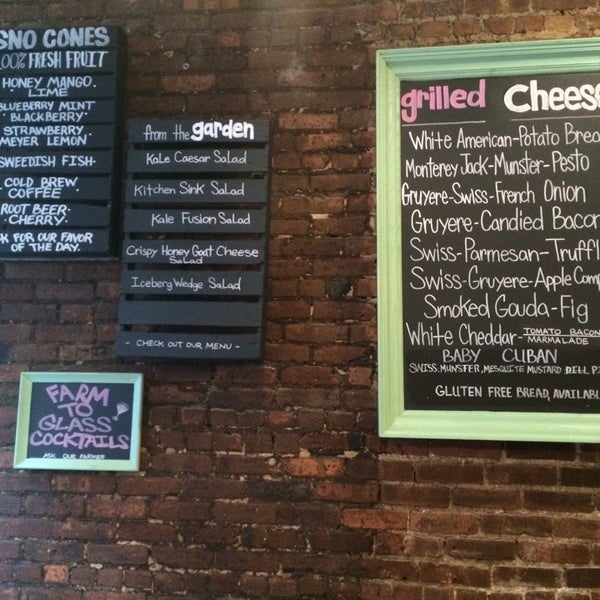 SNO CONES
100% FRESH FRUIT
HONEY MANGO.
LIME
BLUEBERRY MINT
BLACKBERRY.
STRAWBERRY.
MEYER LEMON
SWEEDISH FISH.
COLD BREW.
COFFEE
ROOT BEER.
CHERRY.
SK FOR OUR FAVOR
OF THE DAY.
from the garden
Kale Caesar Salad
Kitchen Sink Salad
Kale Fusion Salad
Crispy Honey Goat Cheese
Salad
Iceberg Wedge Salad
- CHECK OUT OUR MENU -
FARM
TO
GLASS
COCKTAILS
ASK OUR FARMER
grilled Cheese
White American-Potato Brea
Monterey Jack-Munster-Pesto
Gruyere-Swiss-French Onion
Gruyere-Candied Bacon
Swiss-Parmesan-Truffl
Swiss-Gruyere-Apple Comp
Smoked Gouda-Fig
White Cheddar-TOMATO BACON
MARMALADE
BABY CUBAN
SWISS, MUNSTER, MESQUITE MUSTARD, DILL PI
GLUTEN FREE BREAD, AVAILABL